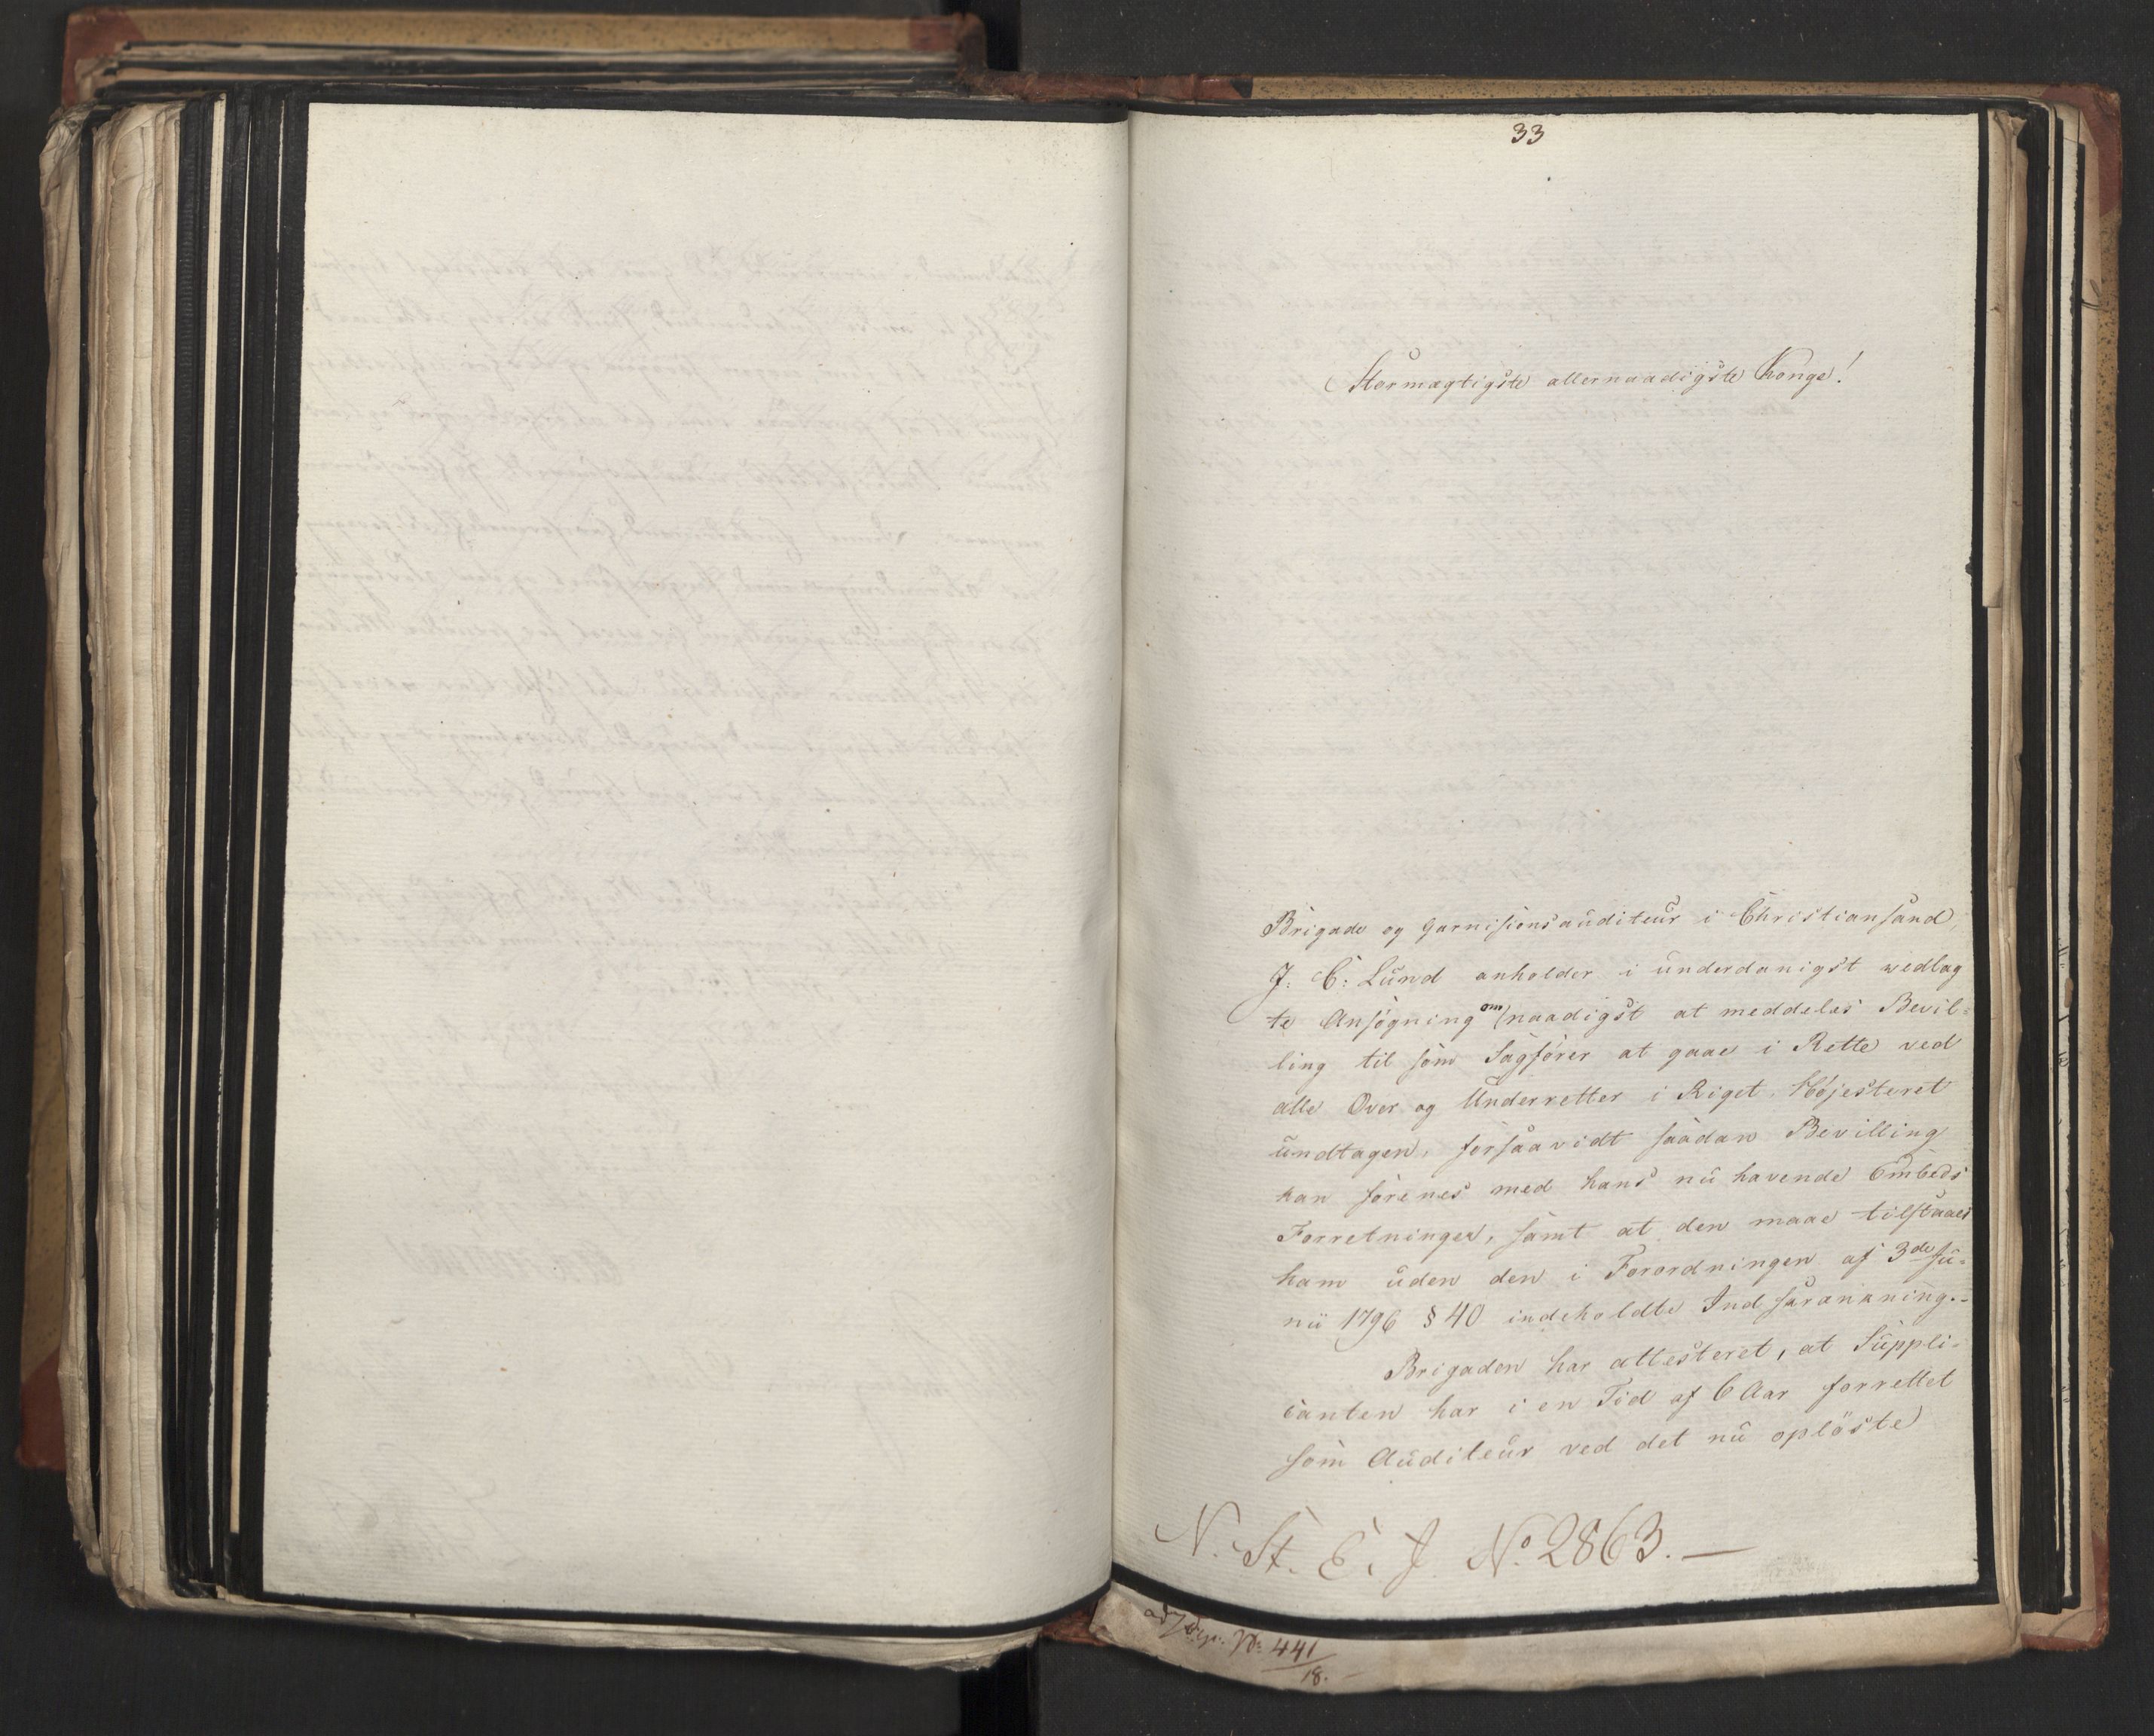 33
Stormægtigste allernaadigste Konge!
Brigade og Garnisionsauditeur i Christiansand,
J. C. Lund anholder i underdanigst vedlag
te Ansøgning om naadigst at meddeles Bevil=
ling til som Sagfører at gaae i Rette ved
alle Over og Underretter i Riget, Højesteret
undtagen, forsaavidt saadan Bevilling
kan forenes med hans nu havende Embeds
Forretninger, samt at den maae tilstaaes
ham uden den i Forordningen af 3de Ju=
nii 1796 § 40 indeholdte Indskrænkning.-
Brigaden har attesteret, at Suppli=
canten har i en Tid af 6 Aar forrettet
som Auditeur ved det nu opløste
N. St. E. J. No. 2863. —
No. 441/18. -